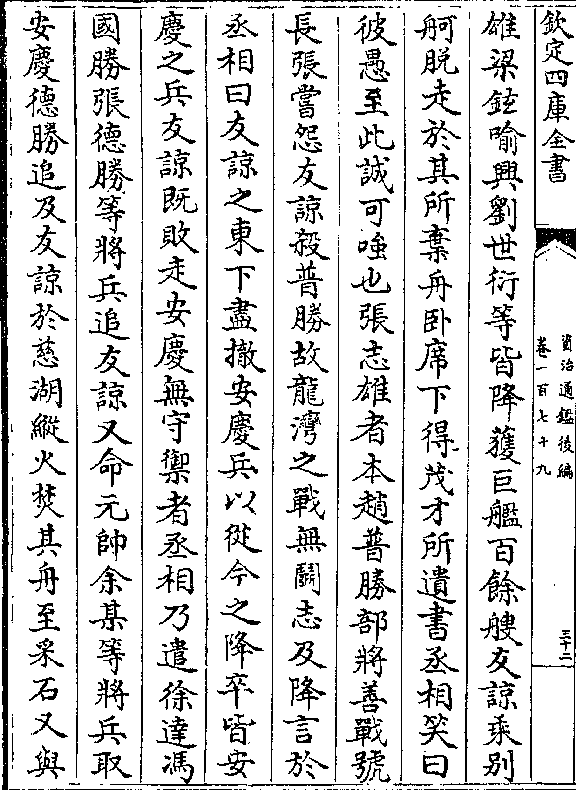 欽定四庫全書
資治通鑑後編
卷一百七十九
三十二
雄梁鉉喻興劉世衍等皆降獲巨艦百餘艘友諒乗别
舸脱走於其所棄舟卧席下得茂才所遺書丞相笑曰
彼愚至此誠可嗤也張志雄者本趙普勝部將善戰號
長張嘗怨友諒殺普勝故龍灣之戰無鬭志及降言於
丞相曰友諒之東下盡撤安慶兵以從今之降卒皆安
慶之兵友諒既敗走安慶無守禦者丞相乃遣徐達馮
國勝張德勝等將兵追友諒又命元帥余某等將兵取
安慶德勝追及友諒於慈湖縱火焚其舟至采石又與